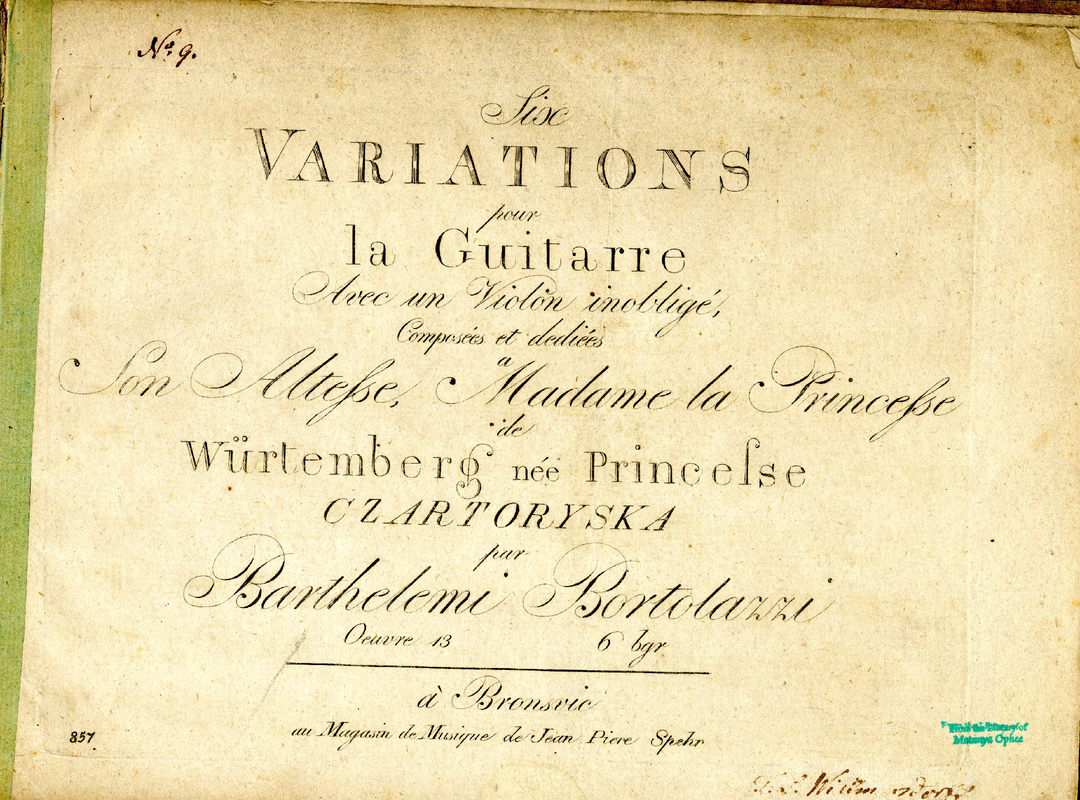 No. 9.
Sixc
VARIATIONS
pour
la Guitarre
Avec un Violon inobligé,
Composées et dediées
a
Son Altesse, Madame la Princesse
de
Würtemberg née Princesse
CZARTORYSKA
par
Barthelemi Bortolazzi
Oeuvre 13 6 bgr
à Bronsvic
au Magasin de Musique de Jean Piere Spehr
857
From the Library of
Matanya Ophee